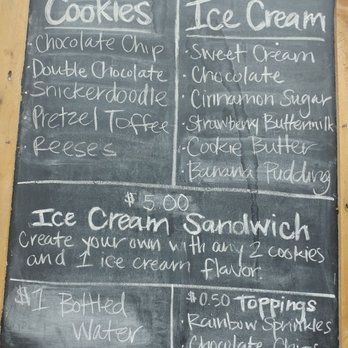 Cookies
· Chocolate Chip
· Double Chocolate
· Snickerdoodle
· Pretzel Toffee
· Reeses
Ice Cream
· Sweet Cream
· Chocolate
· Cinnamon Sugar
· Strawberry Buttermilk
· Cookie Butter
· Banana Pudding
$5.00
Ice Cream Sandwich
Create your own with any 2 cookies
and 1 ice cream flavor.
$1 Bottled
Water
$0.50 Toppings
· Rainbow Sprinkles
· Chocolate Chips